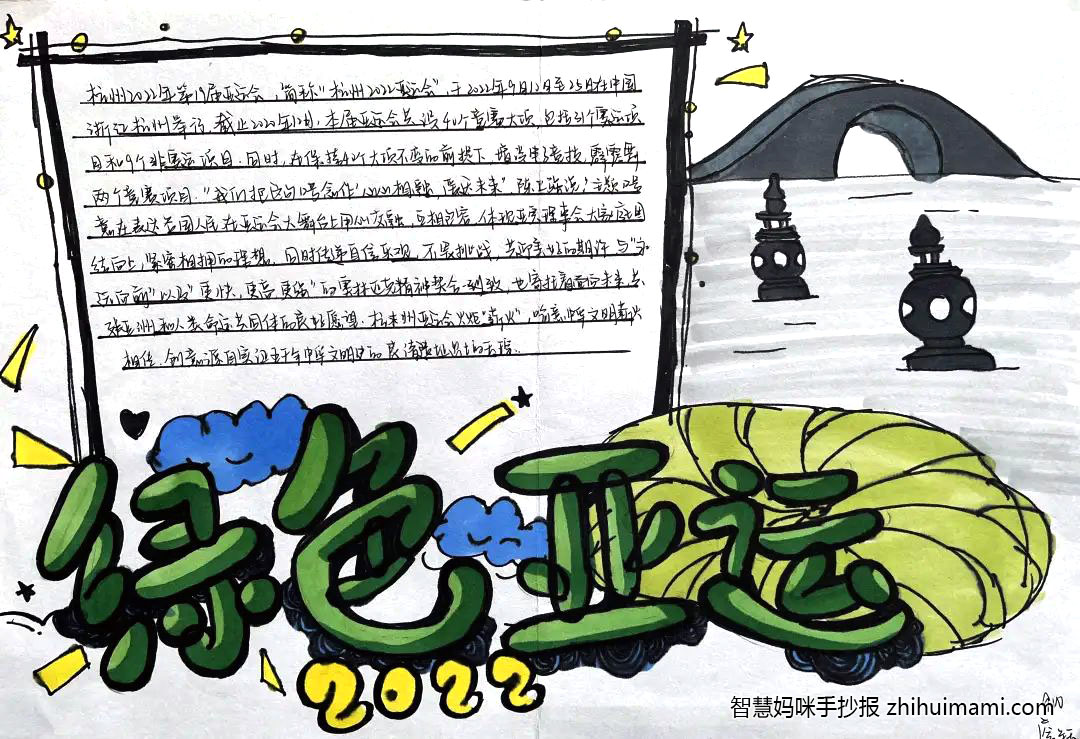 杭州2022年第19届亚运会，简称“杭州2022亚运会”，于2022年9月10日至25日在中国
浙江杭州举行，截止2020年12月，本届亚运会共设40个竞赛大项，包括31个奥运项
目和9个非奥运项目。同时，在保持40个大项不变的前提下，增设电子竞技、霹雳舞
两个竞赛项目。“我们把这句口号念作‘心心相融，爱达未来’”陈上陈说：主题口号
意在表达各国人民在亚运会大舞台上用心交融，互相包容，体现亚奥理事会大家庭团
结向上，紧密相拥的理想。同时传递自信乐观，不畏挑战，共迎美好的期许，与“永
远向前”以及“更快，更高更强”的奥林匹克精神契合一致，也寄托着面向未来，共
建亚洲和人类命运共同体的良好愿望。杭州亚运会火炬“薪火”，喻意中华文明薪火
相传，创意源自实证五千年中华文明史的良渚遗址
绿色亚运
2022
智慧妈咪手抄报 zhihuimami.com